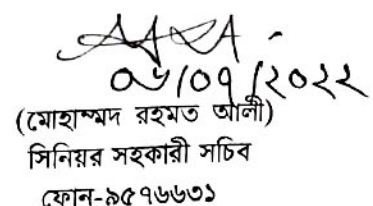 ০৬/০৭/২০২২
(মোহাম্মদ রহমত আলী)
সিনিয়র সহকারী সচিব
ফোন-৯৫৭৬৬৩১